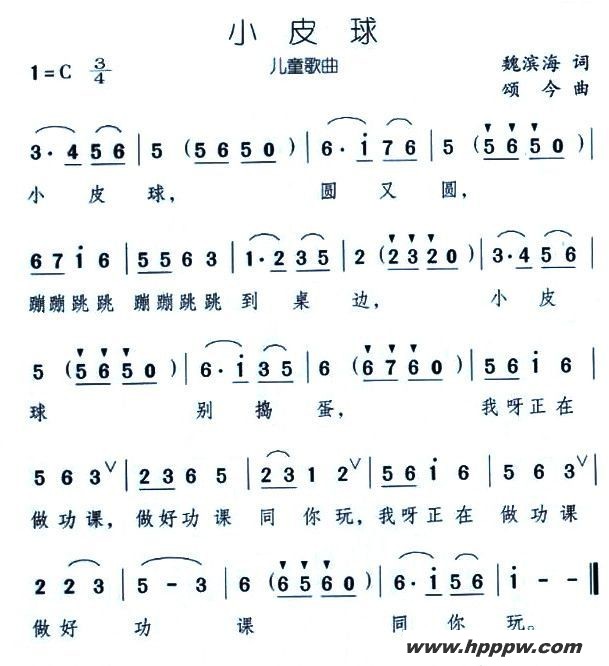 小 皮 球
儿童歌曲
1=C 3/4
魏滨海 词
颂 今 曲
3· 4 5 6 | 5 (5 6 5 0) | 6· i 7 6 | 5 (5 6 5 0) |
小 皮 球， 圆 又 圆，
6 7 i 6 | 5 5 6 3 | 1· 2 3 5 | 2 (2 3 2 0) | 3· 4 5 6 |
蹦蹦跳跳 蹦蹦跳跳 到 桌 边， 小 皮
5 (5 6 5 0) | 6· i 3 5 | 6 (6 7 6 0) | 5 6 i 6 |
球 别 捣 蛋， 我呀正在
5 6 3 ∨ | 2 3 6 5 | 2 3 1 2 ∨ | 5 6 i 6 | 5 5 6 |
做功课，做好功课 同你玩，我呀正在 做功课
2 2 3 | 5 - 3 | 6 (6 5 6 0) | 6· i 5 6 | i - - ‖
做好 功 课 同你 玩。
www.hpppw.com